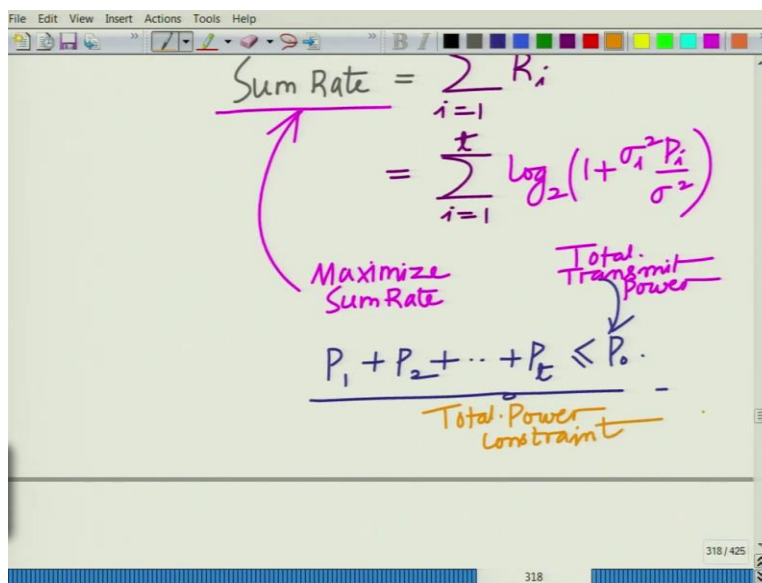 File Edit View Insert Actions Tools Help
B I
Sum Rate = ∑_{i=1} R_i
= ∑_{i=1}^{t} log_2(1+ σ_i^2 P_i / σ^2)
Maximize
Sum Rate
Total
Transmit
Power
P_1 + P_2 + .. + P_t ≤ P_0.
Total Power
Constraint
318 / 425
318